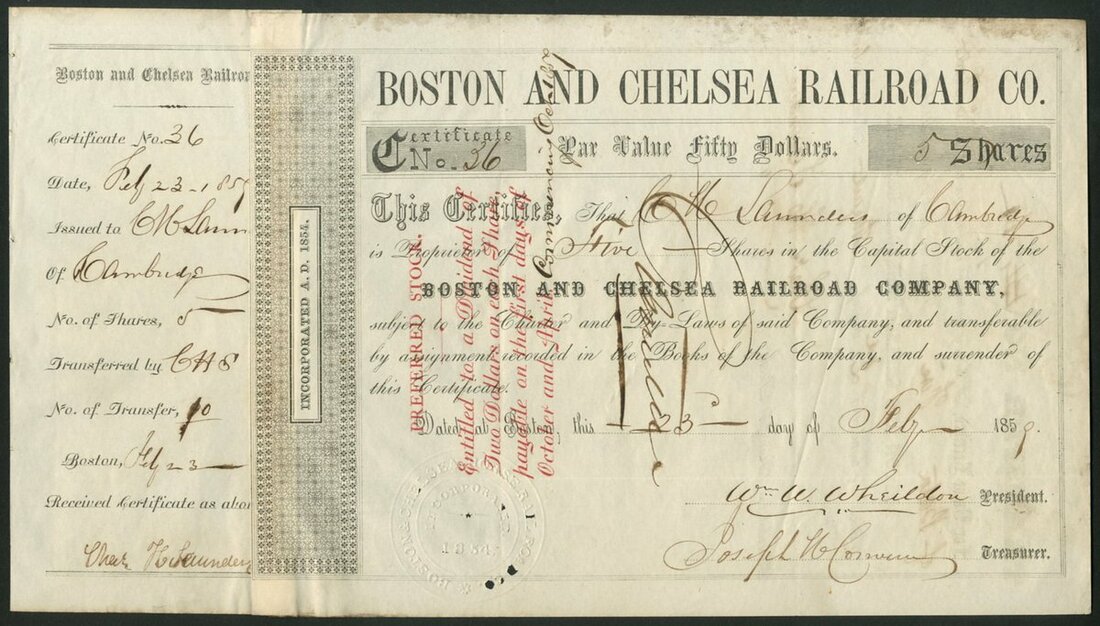 Boston and Chelsea Railro
Certificate No. 36
Date, Feby 23 - 1859
Issued to C H Saun
Of Cambridge
No. of Shares, 5
Transferred by C H S
No. of Transfer, 10
Boston, Feby 23
Received Certificate as abo
Chas H Saunders
INCORPORATED A. D. 1854.
BOSTON AND CHELSEA RAILROAD CO.
Certificate No. 36
Par Value Fifty Dollars.
5 Shares
This Certifies, That C H Saunders of Cambridge
is Proprietor of Five Shares in the Capital Stock of the
BOSTON AND CHELSEA RAILROAD COMPANY,
subject to the Charter and By-Laws of said Company, and transferable
by assignment recorded in the Books of the Company, and surrender of
this Certificate.
Dated at Boston, this 23 day of Feby 1859.
Wm W. Wheildon President.
Joseph H Converse Treasurer.
PREFERRED STOCK.
Entitled to a Dividend of
Two Dollars on each Share,
payable on the first days of
October and April
Commencing Oct 1857
Cancelled
INCORPORATED
1854